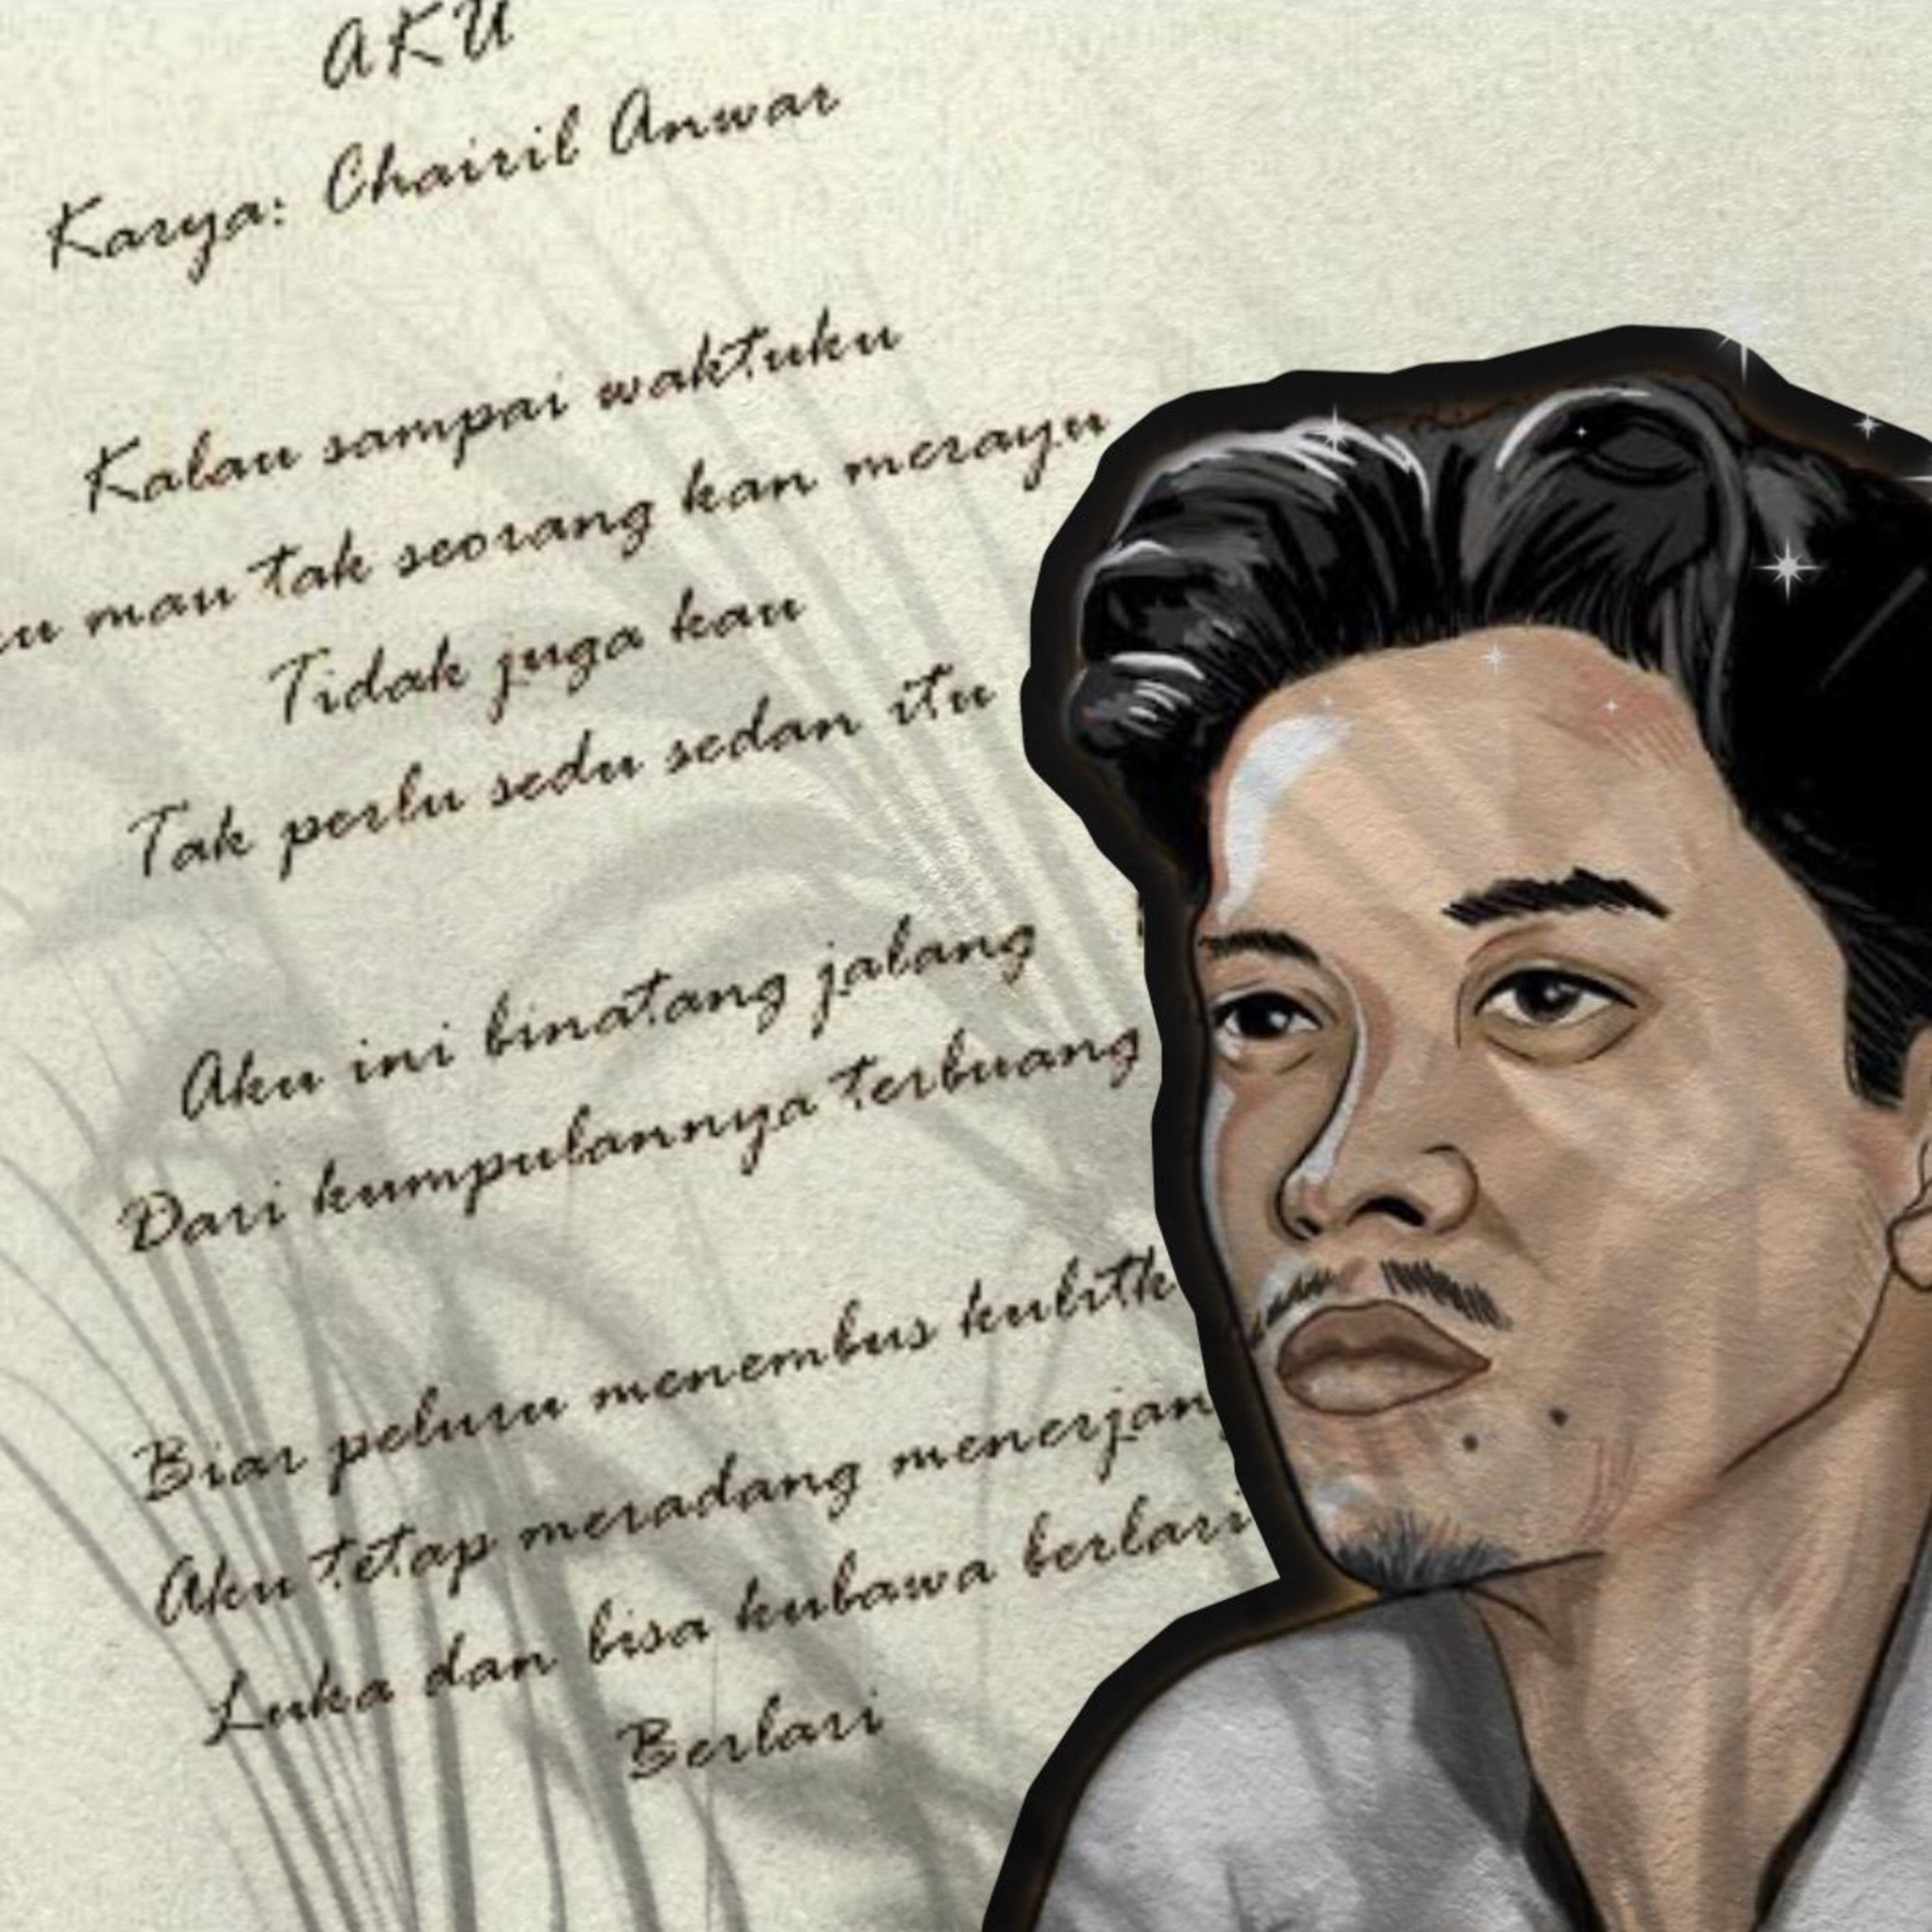 AKU
Karya: Chairil Anwar
Kalau sampai waktuku
mau tak seorang kan merayu
Tidak juga kau
Tak perlu sedu sedan itu
Aku ini binatang jalang
Dari kumpulannya terbuang
Biar peluru menembus kulitk
Aku tetap meradang menerjang
Luka dan bisa kubawa berlari
Berlari